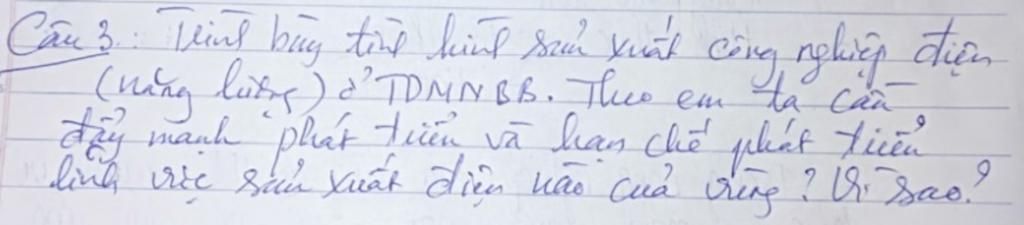 Câu 3: Trình bày tình hình sản xuất công nghiệp điện
(năng lượng) ở TDMNBB. Theo em ta cần
đẩy mạnh phát triển và hạn chế phát triển
lĩnh vực sản xuất điện nào của vùng? Vì sao?